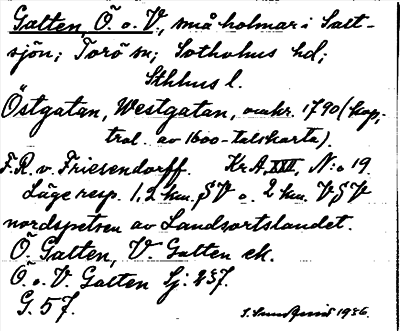 Galten, Ö. o. V., små holmar i Salt-
sjön; Torö sn; Sotholms hd;
Sthlms l.
Östgatan, Westgatan, omkr. 1790 (kop,
trol. av 1600-talskarta).
F.R. v. Friesendorff. Kr.A. XVII, N:o 19.
Läge resp. 1,2 km. SV o. 2 km. VSV
nordspetsen av Landsortslandet.
Ö. Galten, V. Galten ek.
Ö. o. V. Galten Sj. 237.
G. 57.
1936.